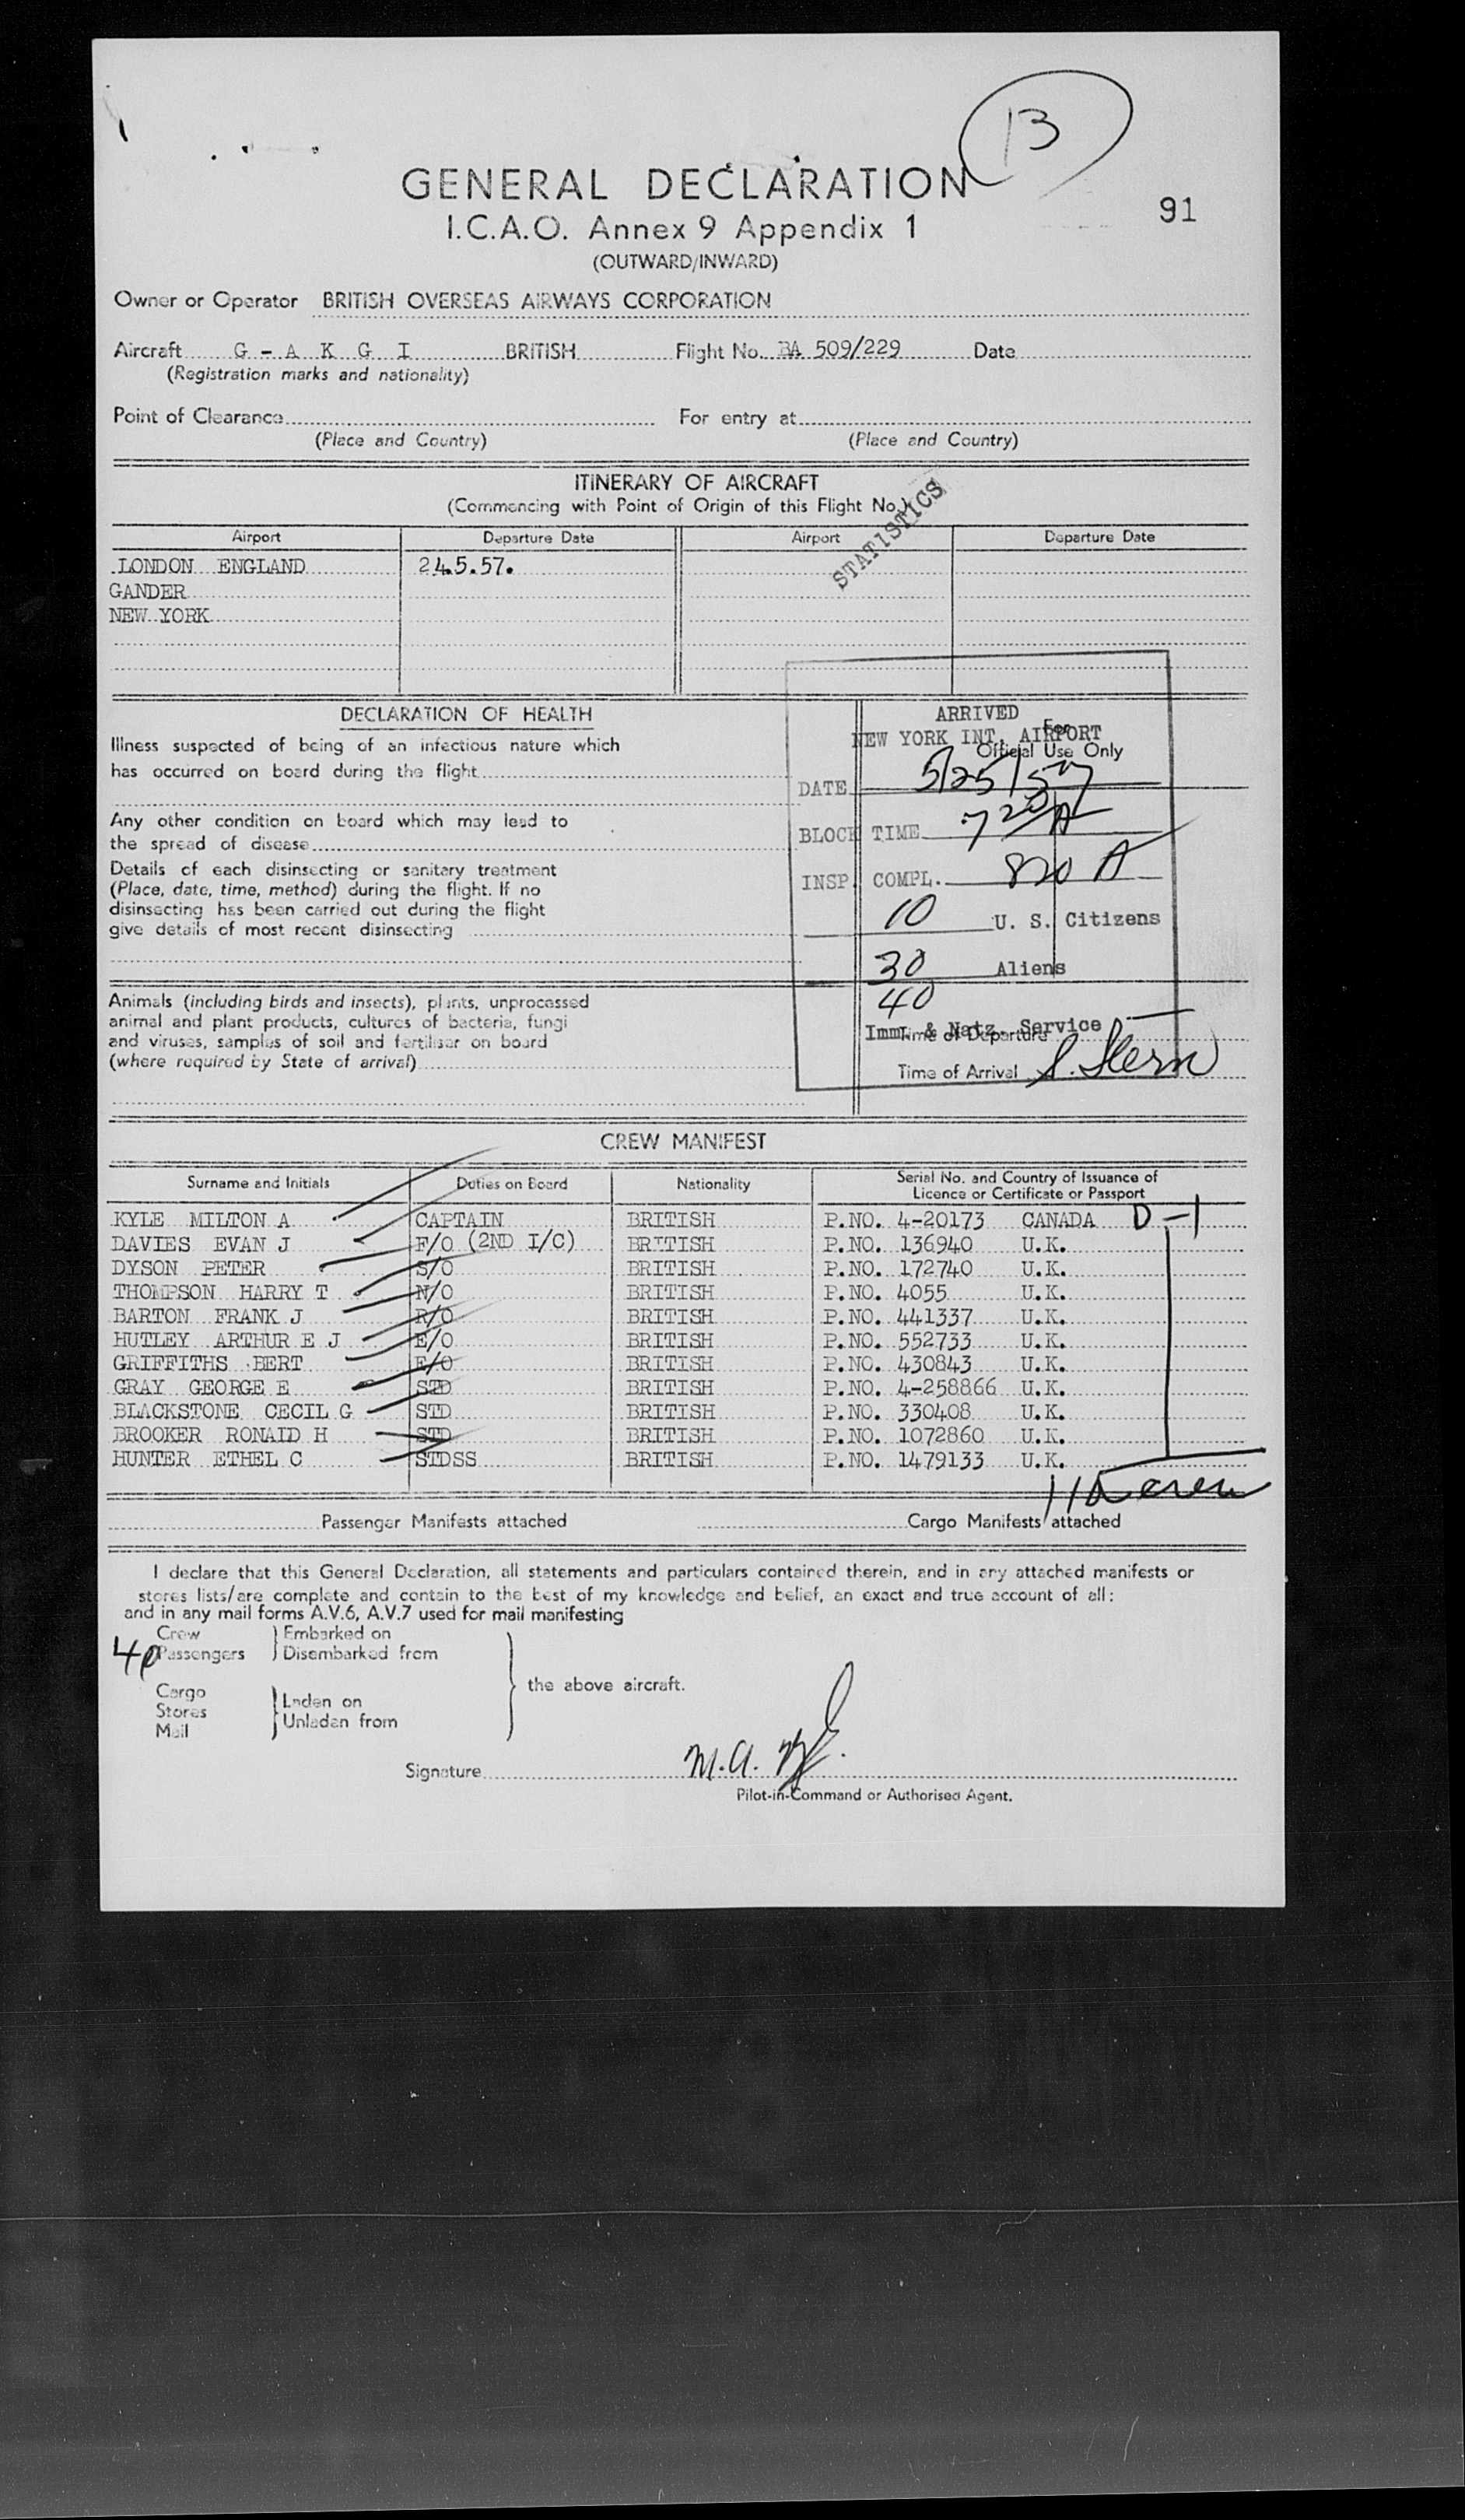 13
GENERAL DECLARATION
91
I.C.A.O. Annex 9 Appendix 1
(OUTWARD/INWARD)
Owner or Operator BRITISH OVERSEAS AIRWAYS CORPORATION
Aircraft G - A K G I BRITISH Flight No. BA 509/229 Date
(Registration marks and nationality)
Point of Clearance For entry at
(Place and Country) (Place and Country)
ITINERARY OF AIRCRAFT
(Commencing with Point of Origin of this Flight No.)
STATISTICS
Airport Departure Date Airport Departure Date
LONDON ENGLAND 24.5.57.
GANDER
NEW YORK
DECLARATION OF HEALTH
Illness suspected of being of an infectious nature which
has occurred on board during the flight
Any other condition on board which may lead to
the spread of disease
Details of each disinsecting or sanitary treatment
(Place, date, time, method) during the flight. If no
disinsecting has been carried out during the flight
give details of most recent disinsecting
Animals (including birds and insects), plants, unprocessed
animal and plant products, cultures of bacteria, fungi
and viruses, samples of soil and fertiliser on board
(where required by State of arrival)
For
Official Use Only
ARRIVED
NEW YORK INT. AIRPORT
DATE 5/25/57
BLOCK TIME 7 20 A
INSP. COMPL. 820 A
10 U. S. Citizens
30 Aliens
40
Imm. & Natz. Service
Time of Departure
Time of Arrival S. Stern
CREW MANIFEST
Surname and Initials Duties on Board Nationality Serial No. and Country of Issuance of
Licence or Certificate or Passport
KYLE MILTON A CAPTAIN BRITISH P.NO. 4-20173 CANADA D-1
DAVIES EVAN J F/O (2ND I/C) BRITISH P.NO. 136940 U.K.
DYSON PETER S/O BRITISH P.NO. 172740 U.K.
THOMPSON HARRY T N/O BRITISH P.NO. 4055 U.K.
BARTON FRANK J R/O BRITISH P.NO. 441337 U.K.
HUTLEY ARTHUR E J E/O BRITISH P.NO. 552733 U.K.
GRIFFITHS BERT E/O BRITISH P.NO. 430843 U.K.
GRAY GEORGE E STD BRITISH P.NO. 4-258866 U.K.
BLACKSTONE CECIL G STD BRITISH P.NO. 330408 U.K.
BROOKER RONAID H STD BRITISH P.NO. 1072860 U.K.
HUNTER ETHEL C STDSS BRITISH P.NO. 1479133 U.K.
11 Crew
Passenger Manifests attached Cargo Manifests attached
I declare that this General Declaration, all statements and particulars contained therein, and in any attached manifests or
stores lists/are complete and contain to the best of my knowledge and belief, an exact and true account of all:
and in any mail forms A.V.6, A.V.7 used for mail manifesting
Crew Embarked on
40 Passengers Disembarked from
the above aircraft.
Cargo
Stores Laden on
Mail Unladen from
Signature M.A.
Pilot-in-Command or Authorised Agent.